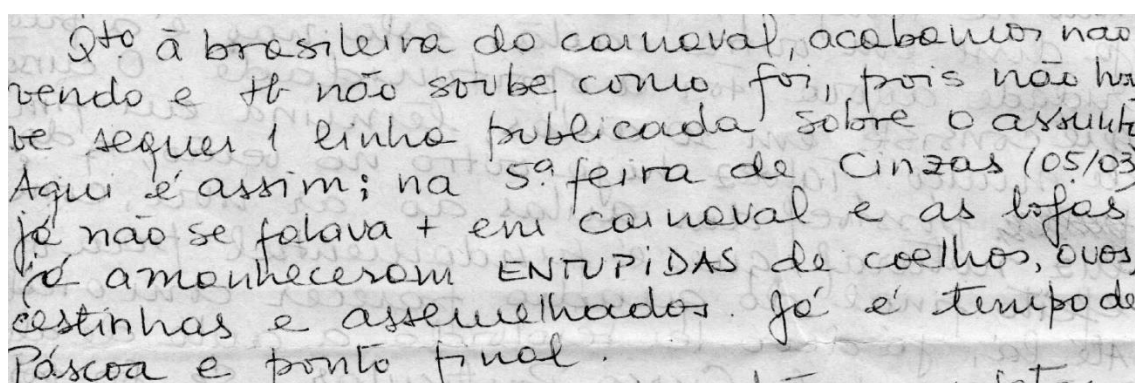 Qto à brasileira do carnaval, acabamos não
vendo e tb não soube como foi, pois não hou
ve sequer 1 linha publicada sobre o assunto
Aqui é assim; na 5ª feira de Cinzas (05/03)
já não se falava + em carnaval e as lojas
já amanheceram ENTUPIDAS de coelhos, ovos,
cestinhas e assemelhados. Já é tempo de
Páscoa e ponto final.